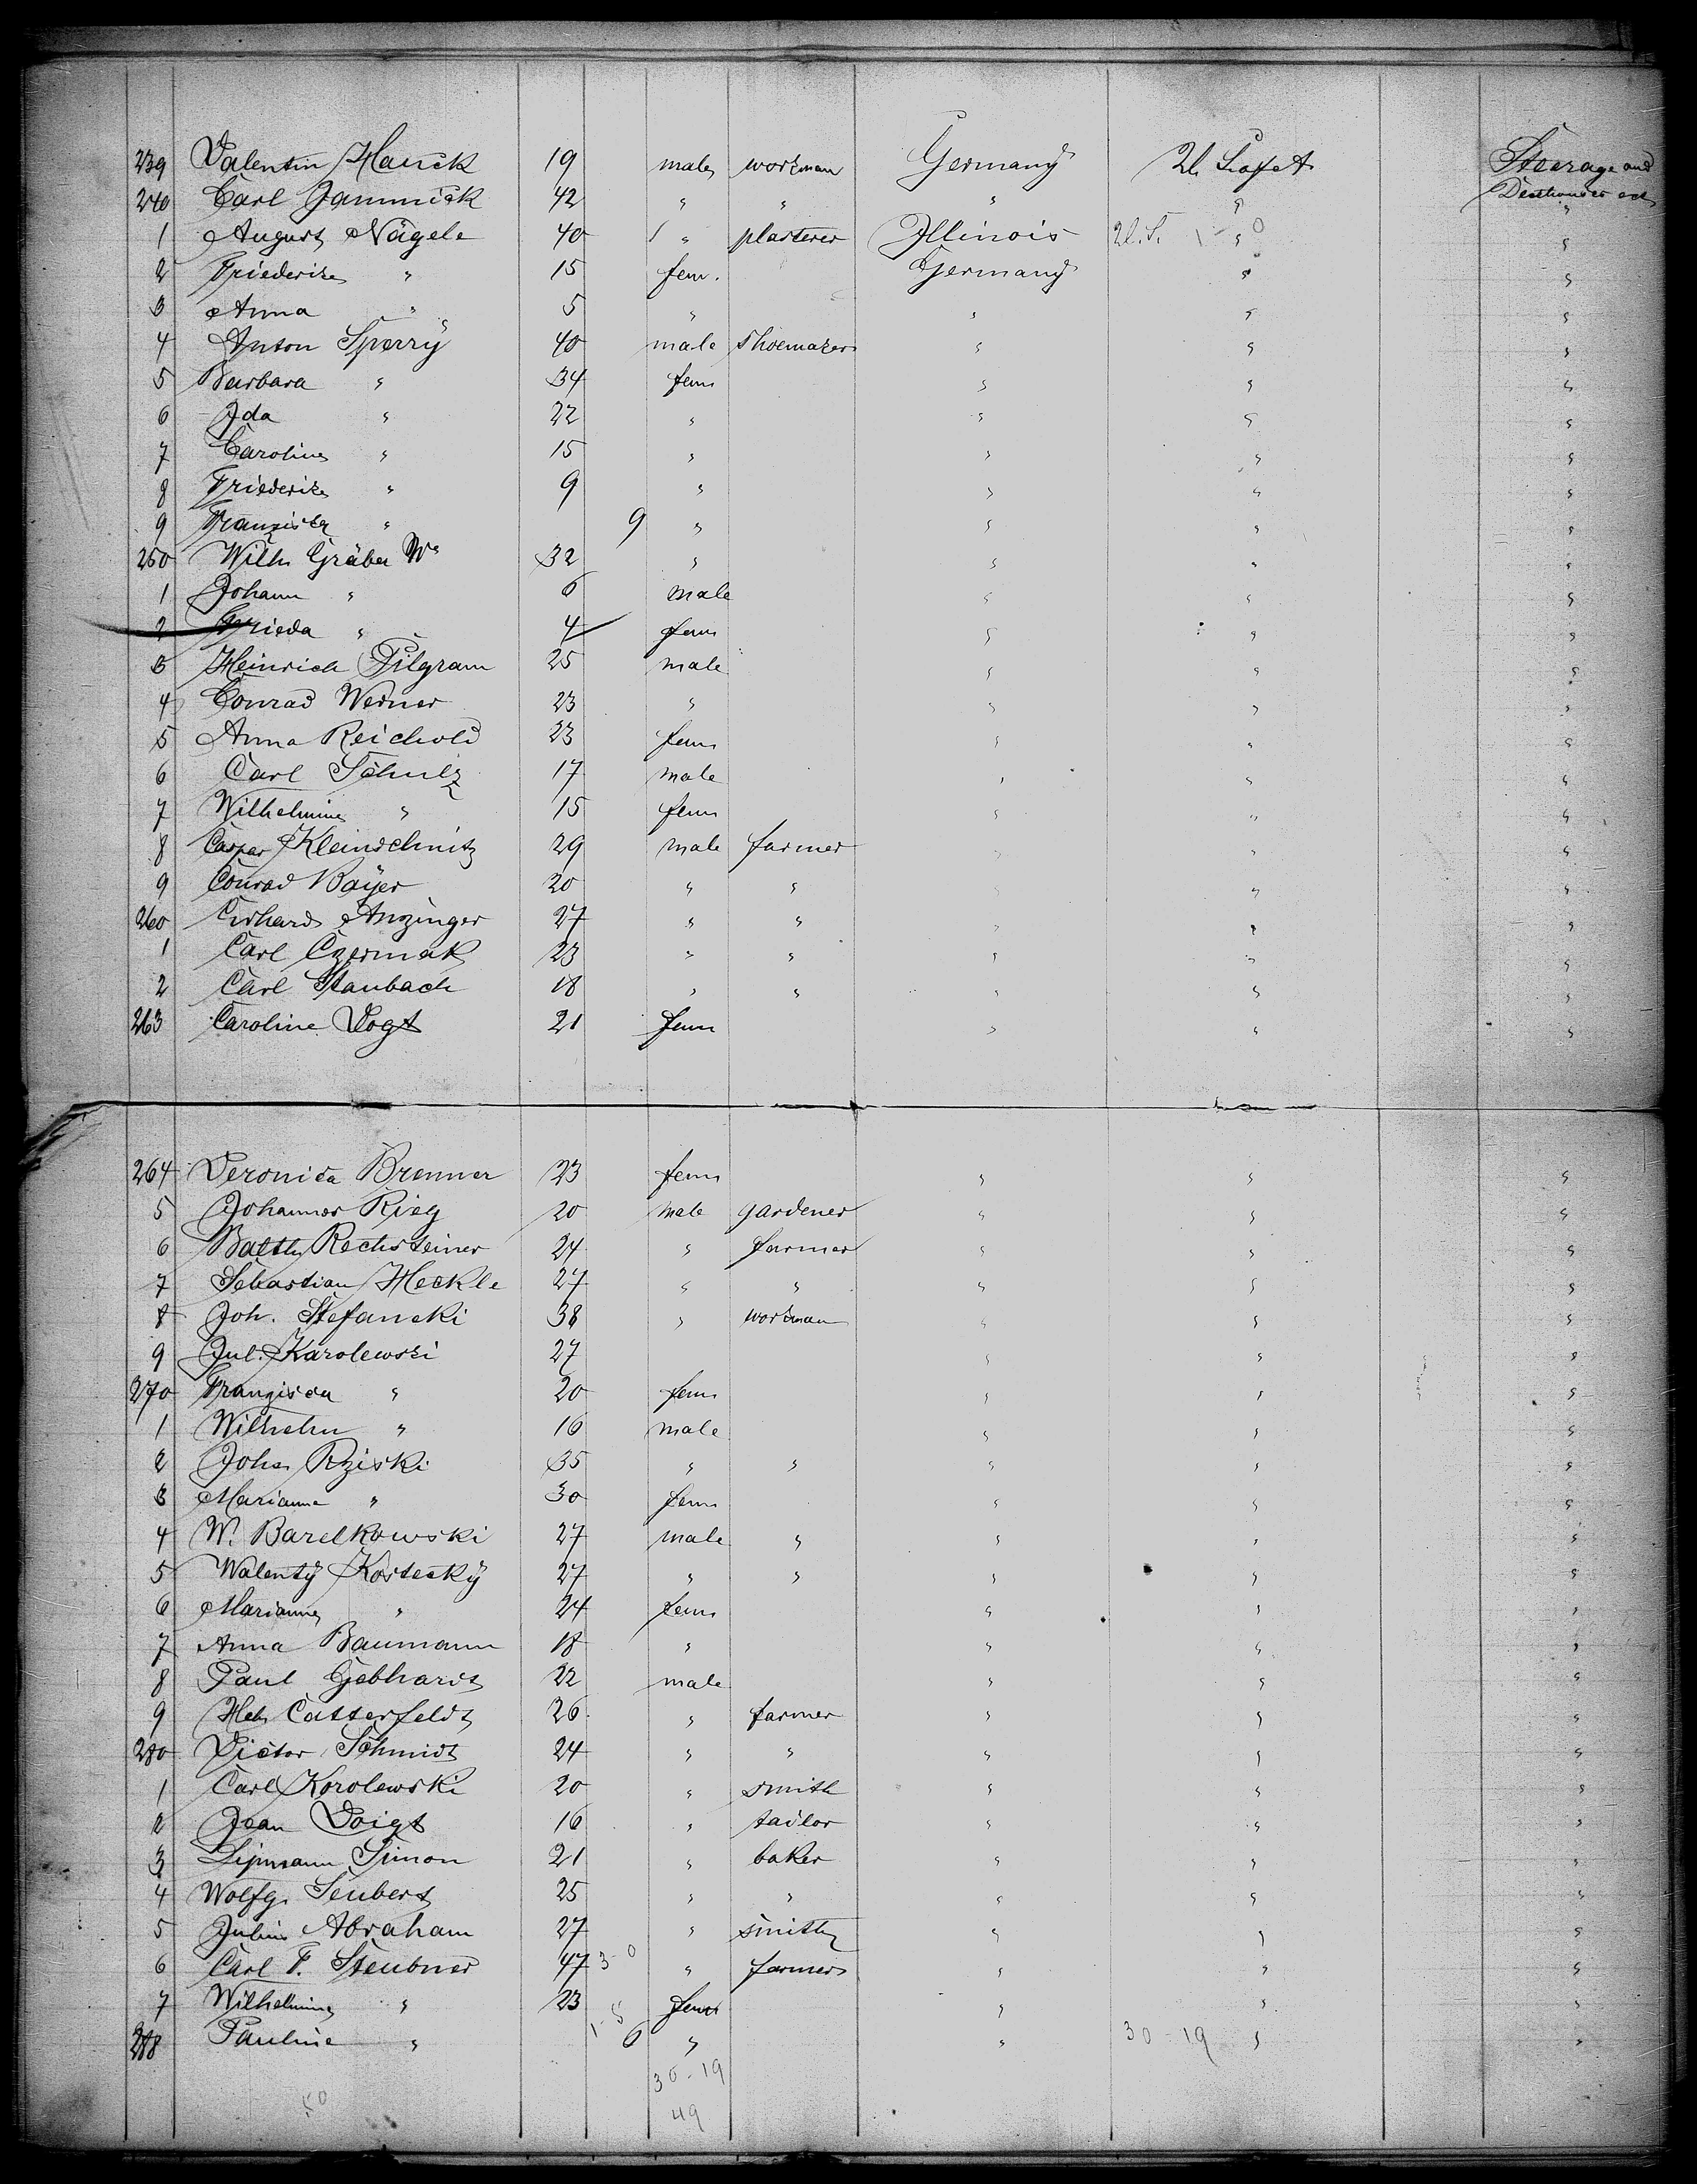 239 Valentin Hauck 19 male workman Germany U. States Steerage and
240 Carl Jammick 42 " " " " Deathhouses ect
1 August Nägele 40 1 " plasterer Illinois U.S. 1-0 " "
2 Friederike " 15 fem. Germany " "
3 Anna " 5 " " " "
4 Anton Sperry 40 male shoemaker " " "
5 Barbara " 34 fem " " "
6 Ida " 22 " " " "
7 Caroline " 15 " " " "
8 Friederike " 9 " " " "
9 Franziska " 9 " " " "
250 Wilh. Gräber Ws 32 " " " "
1 Johann " 6 male " " "
2 Frieda " 4 fem " " "
3 Heinrich Pilgram 25 male " " "
4 Conrad Werner 23 " " " "
5 Anna Reichold 23 fem " " "
6 Carl Schulz 17 male " " "
7 Wilhelmine " 15 fem " " "
8 Caspar Kleinschmitz 29 male farmer " " "
9 Conrad Bayer 20 " " " " "
260 Erhard Anzinger 27 " " " " "
1 Carl Czermak 23 " " " " "
2 Carl Staubach 18 " " " " "
263 Caroline Vogt 21 fem " " "
264 Veronica Brenner 23 fem " " "
5 Johannes Rieg 20 male gardener " " "
6 Balth. Rechsteiner 24 " farmer " " "
7 Sebastian Heckle 27 " " " " "
8 Joh. Stefanski 38 " workman " " "
9 Jul. Karolewski 27 " " "
270 Franzisca " 20 fem " " "
1 Wilhelm " 16 male " " "
2 Johan Rziski 35 " " " " "
3 Marianna " 30 fem " " "
4 W. Barelkowski 27 male " " " "
5 Walenty Kostecky 27 " " " " "
6 Marianna " 24 fem " " "
7 Anna Baumann 18 " " " "
8 Paul Gebhardt 22 male " " "
9 Hch Catterfeldt 26 " farmer " " "
280 Victor Schmidt 24 " " " " "
1 Carl Korolewski 20 " smith " " "
2 Jean Voigt 16 " tailor " " "
3 Lipmann Simon 21 " baker " " "
4 Wolfg. Seubert 25 " " " " "
5 Julius Abraham 27 " smith " " "
6 Carl F. Steubner 47 3-0 " farmer " " "
7 Wilhelmine " 23 fem " " "
288 Pauline " 1-5 6 " " 30-19 " "
30-19
50 49